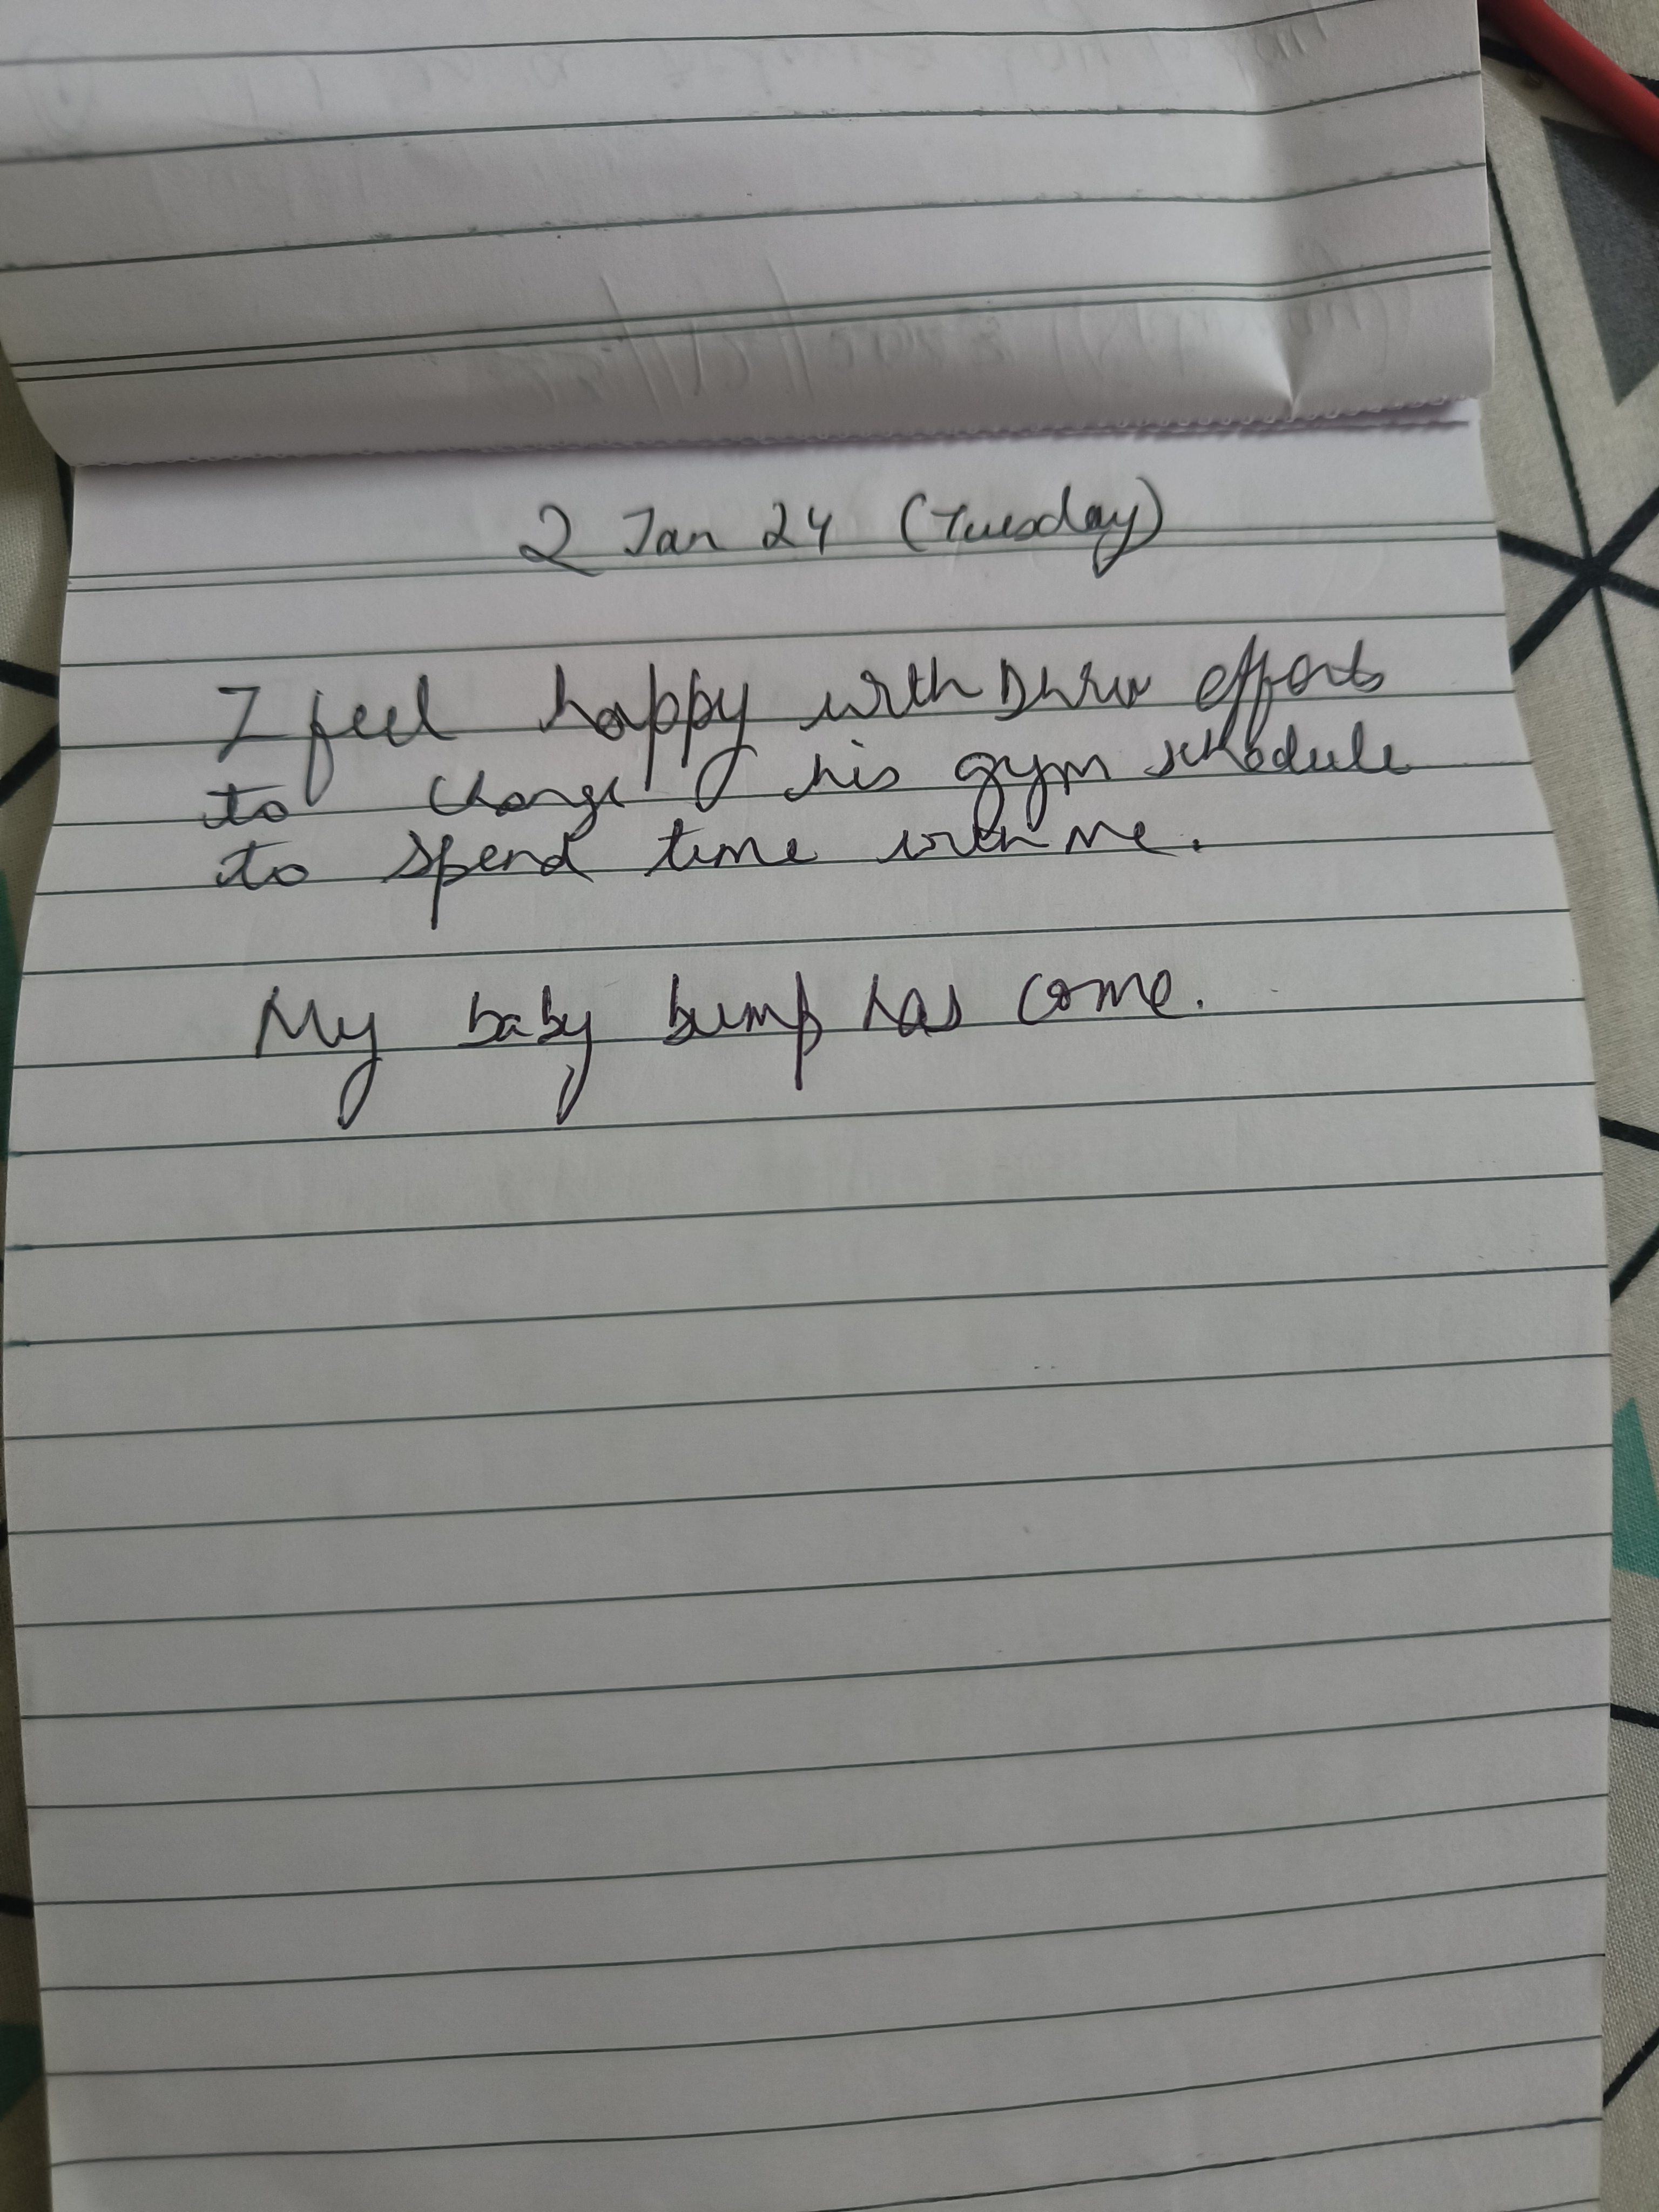 2 Jan 24 (Tuesday)
I feel happy with efforts
to change his gym schedule
to spend time with me.
My baby bump has come.